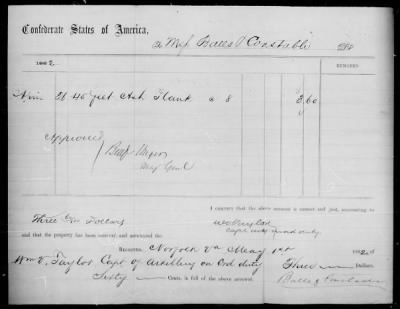 Confederate States of America,
To Balls & Constable Dr.
1862
REMARKS.
45 feet Ash Plank a 8 3.60
Approved
Benj Huger
Maj Genl
I certify that the above account is correct and just, amounting to
Three Dollars
and that the property has been received, and
Capt
RECEIVED, Norfolk Va May 1st 1862, of
Wm V. Taylor Capt of Artillery on Ord duty Three Dollars,
Sixty Cents, in full of the above account.
Balls & Constable